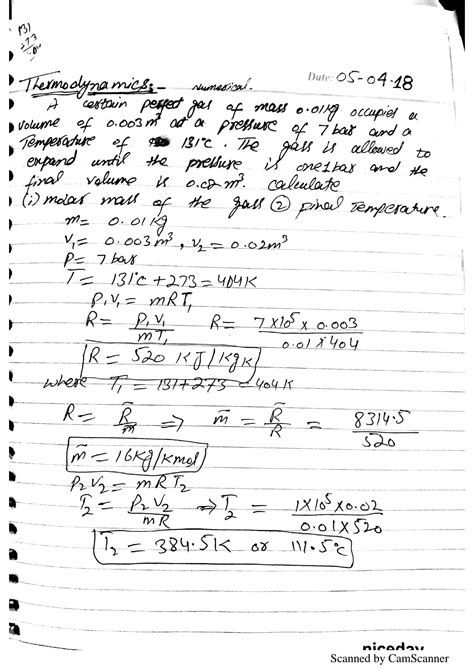 131
273
404
Thermodynamics:- numerical. Date: 05-04-18
A certain perfect gas of mass 0.01kg occupies a
volume of 0.003m³ at a pressure of 7 bar and a
Temperature of 131°c. The gass is allowed to
expand until the pressure is one1bar and the
final volume is 0.02 m³. calculate
(i) molar mass of the gass ② final Temperature.
m = 0.01 kg
V₁ = 0.003m³, V₂ = 0.02m³
P = 7 bar
T = 131°c + 273 = 404K
P₁V₁ = mRT₁
R = P₁V₁ / mT₁ R = 7×10⁵ × 0.003 / 0.01×404
R = 520 KJ/kgK
where T₁ = 131+273 = 404K
R = R̃ / m̃ ⇒ m̃ = R̃ / R = 8314.5 / 520
m̃ = 16kg/kmol
P₂V₂ = mRT₂
T₂ = P₂V₂ / mR ⇒ T₂ = 1×10⁵×0.02 / 0.01×520
T₂ = 384.5K or 111.5°c
niceday
Scanned by CamScanner